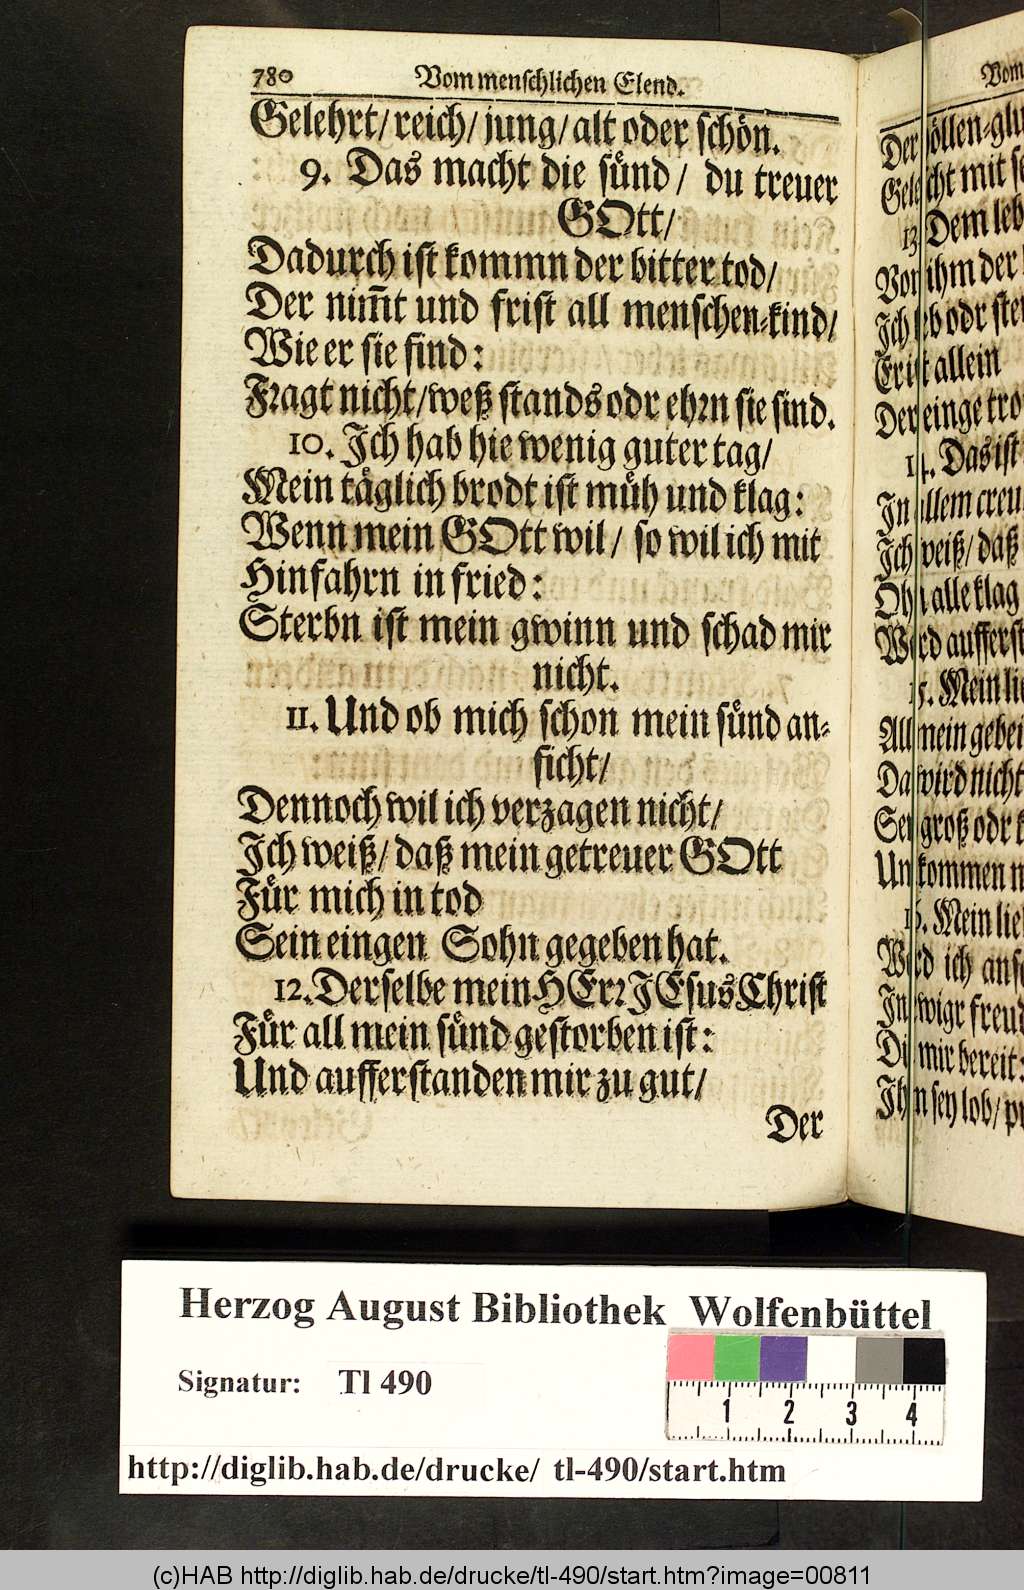 780 Vom menschlichen Elend.
Gelehrt/ reich/ jung/ alt oder schön.
9. Das macht die sünd/ du treuer
GOtt/
Dadurch ist kommn der bitter tod/
Der nim̅t und frist all menschen-kind/
Wie er sie find:
Fragt nicht/ weß stands odr ehrn sie sind.
10. Ich hab hie wenig guter tag/
Mein täglich brodt ist müh und klag:
Wenn mein GOtt wil/ so wil ich mit
Hinfahrn in fried:
Sterbn ist mein gwinn und schad mir
nicht.
11. Und ob mich schon mein sünd an-
ficht/
Dennoch wil ich verzagen nicht/
Ich weiß/ daß mein getreuer GOtt
Für mich in tod
Sein eingen Sohn gegeben hat.
12. Derselbe mein HErr JEsus Christ
Für all mein sünd gestorben ist:
Und aufferstanden mir zu gut/
Der
Vom
Der höllen-glu
Gelescht mit se
13. Dem leb
Von ihm der
Ich leb odr ster
Er ist allein
Der einge tro
14. Das ist
In allem creu
Ich weiß/ daß
Ohn alle klag
Werd aufferst
15. Mein lie
All mein gebei
Da wird nicht
Sey groß odr k
Umkommen n
16. Mein lie
Werd ich ansc
In ewigr freud
Die mir bereit:
Ihm sey lob/ pr
Herzog August Bibliothek Wolfenbüttel
Signatur: Tl 490
1 2 3 4
http://diglib.hab.de/drucke/ tl-490/start.htm
(c)HAB http://diglib.hab.de/drucke/tl-490/start.htm?image=00811